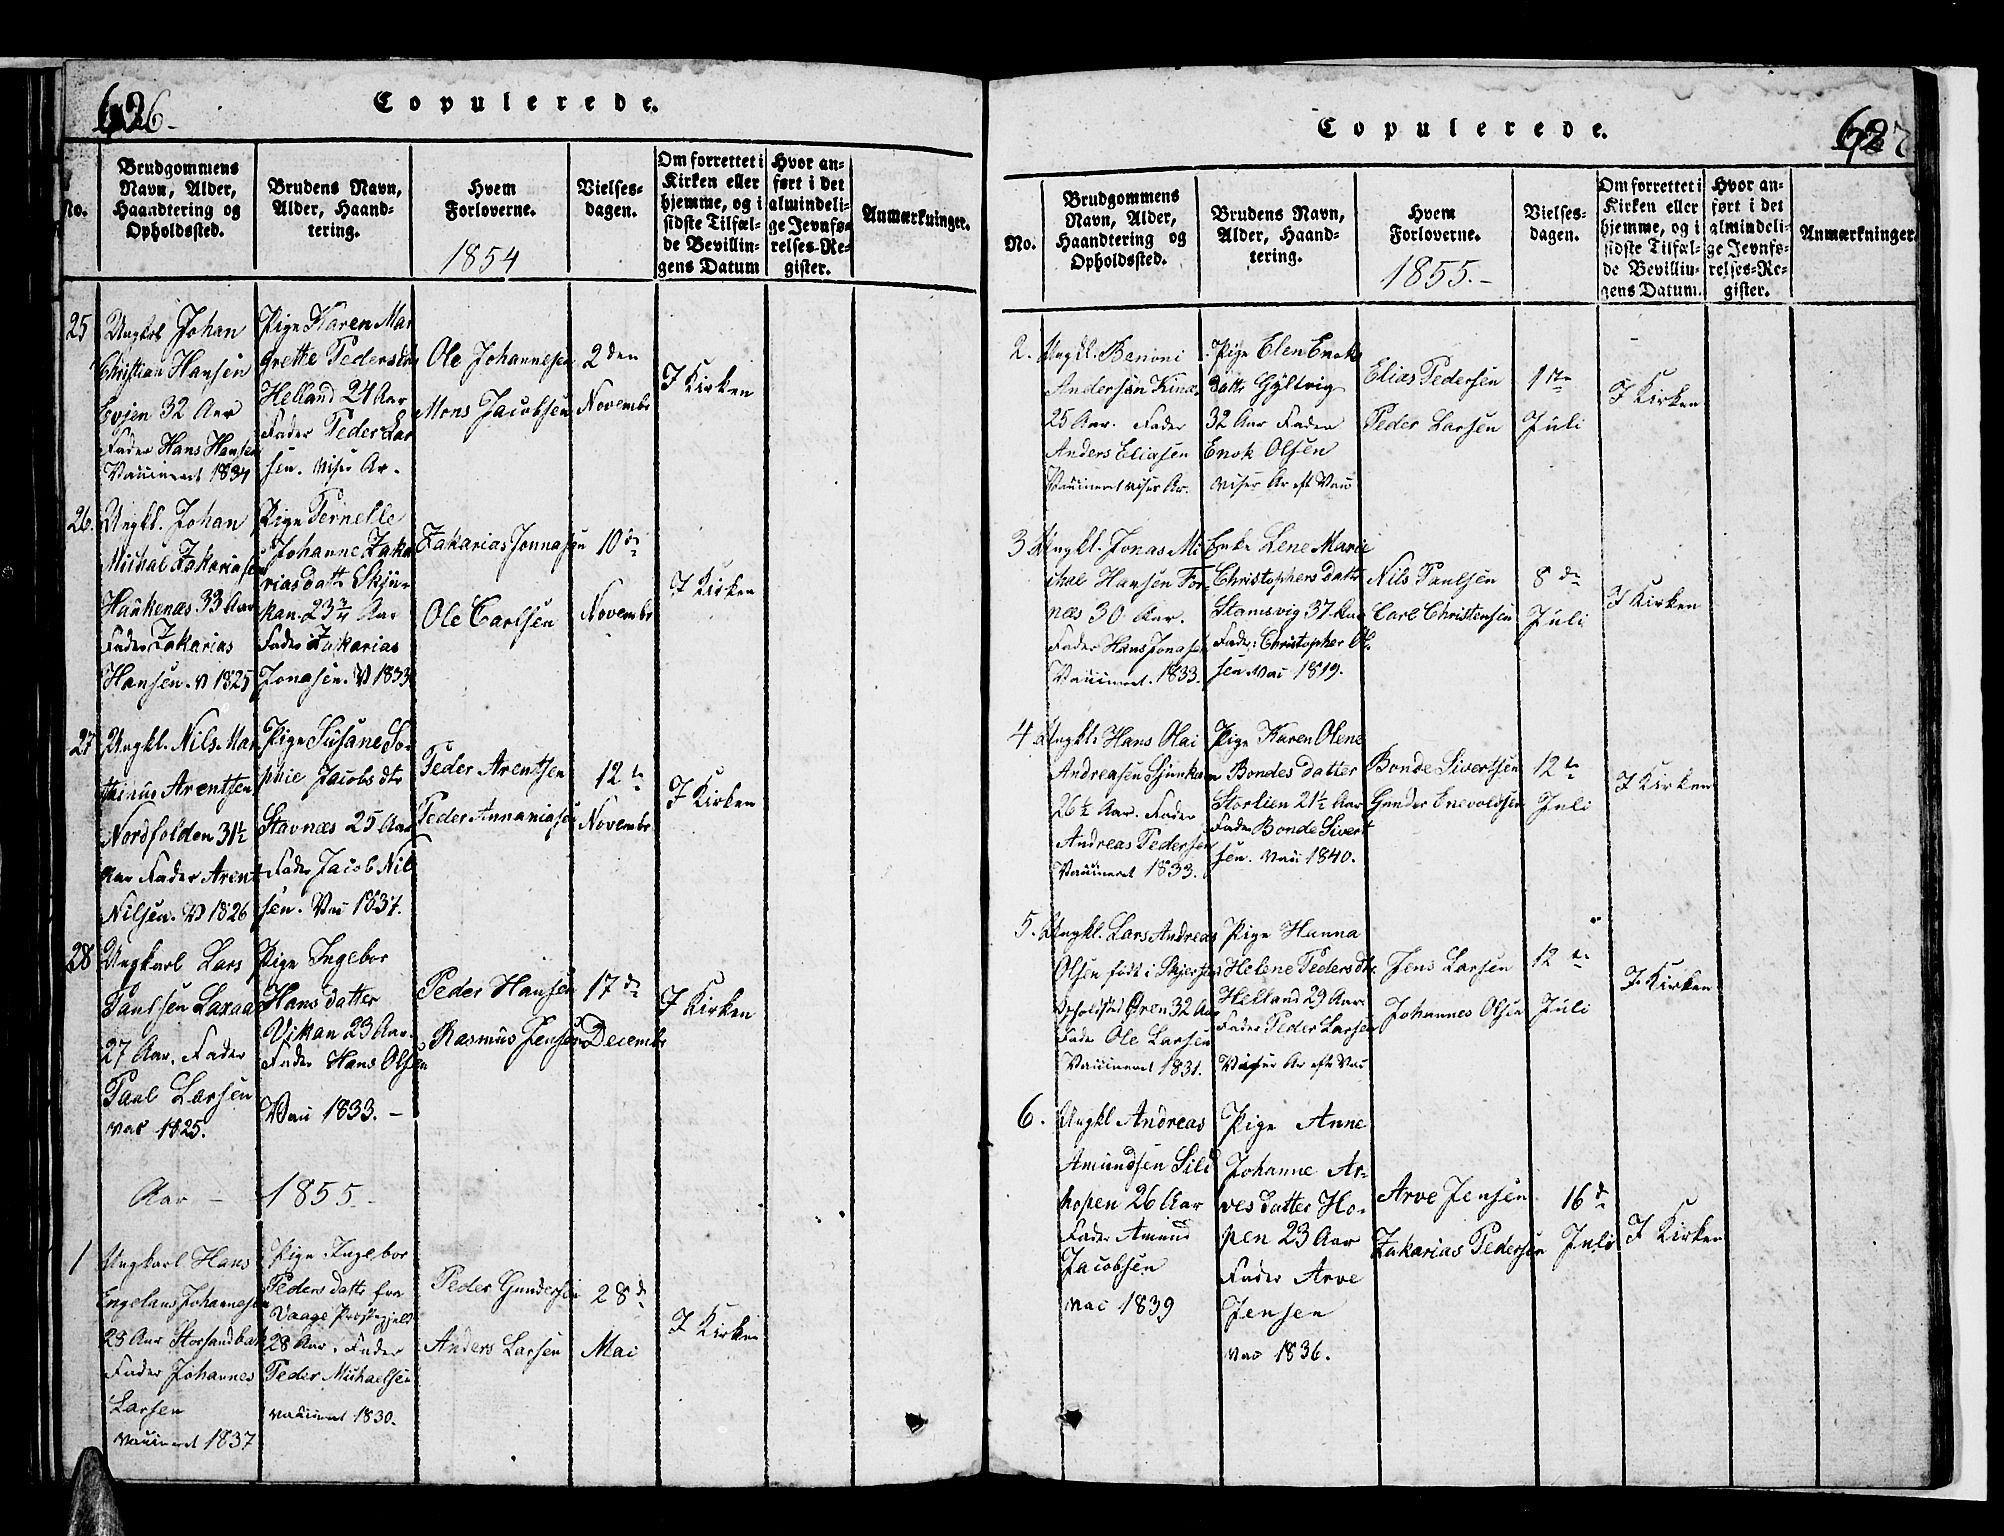 626
Copulerede.
No.
Brudgommens
Navn, Alder,
Haandtering og
Opholdssted.
Brudens Navn,
Alder, Haand-
tering.
Hvem
Forloverne.
1854
Vielses-
dagen.
Om forrettet i
Kirken eller
hjemme, og i
sidste Tilfæl-
de Bevillin-
gens Datum
Hvor an-
ført i det
almindeli-
ge Jevnfø-
relses-Re-
gister.
Anmærkninger.
25
Ungkl Johan
Christian Hansen
Evjen 32 Aar
Fader Hans Hansen
Vaccineret 1834
Pige Karen Mar
grethe Pedersdtr
Helland 24 Aar
Fader Peder Lar
sen. viser Ar.
Ole Johannesen
Mons Jacobsen
2den
Novembr
I Kirken
26.
Ungkl. Johan
Michal Zakariasen
Haukenæs 33 Aar
Fader Zakarias
Hansen. V 1825
Pige Pernelle
Johanne Zaka
riasdatt Skju-
kan 23 3/4 Aar
Fader Zakarias
Jonasen. V 1833
Zakarias Jonnasen
Ole Carlsen
10de
Novembr
I Kirken
27
Ungkl. Nils Mar
thinus Arentsen
Nordfolden 31½
Aar Fader Arent
Nilsen. V 1826
Pige Susane So-
phie Jacobsdtr
Stavnæs 25 Aar
Fader Jacob Nil
sen. Vac 1837.
Peder Arentsen
Peder Annaniasen
12te
Novembr
I Kirken
28
Ungkarl Lars
Paulsen Laxaa
27 Aar. Fader
Paul Larsen
vac 1825.
Pige Ingebor
Hansdatter
Vikan 23 Aar.
Fader Hans Olsen
Vac 1833. -
Peder Hansen
Rasmus Jensen
17de
Decembr
I Kirken
Aar - 1855 -
1
Ungkarl Hans
Engelaus Johannesen
23 Aar Storsandbak
Fader Johannes
Larsen
vaccineret 1837
Pige Ingebor
Pedersdatt fra
Vaage Præstegjeld
28 Aar. Fader
Peder Michaelsen
vaccineret 1830.
Peder Gundersen
Anders Larsen
28de
Mai
I Kirken
627
Copulerede.
No.
Brudgommens
Navn, Alder,
Haandtering og
Opholdssted.
Brudens Navn,
Alder, Haand-
tering.
Hvem
Forloverne.
1855. -
Vielses-
dagen.
Om forrettet i
Kirken eller
hjemme, og i
sidste Tilfæl-
de Bevillin-
gens Datum.
Hvor an-
ført i det
almindeli-
ge Jevnfø-
relses-Re-
gister.
Anmærkninger.
2.
Ungkl. Benoni
Andersen Kinæs
25 Aar. Fader
Anders Eliasen
Vaccineret viser Ar.
Pige Elen Enoks
datt Gyltvig
32 Aar Fader
Enok Olsen
viser Ar eft Vac
Elias Pedersen
Peder Larsen
1ste
Juli
I Kirken
3
Ungkl. Jonas Mi
chal Hansen For-
næs 30 Aar.
Fader Hans Jonasen
Vaccineret. 1833.
Enke Lene Marie
Christophersdatt
Stamsvig 37 Aar
Fader: Christopher Ol-
sen Vac 1819.
Nils Paulsen
Carl Christensen
8de
Juli
I Kirken
4
Ungkl. Hans Olai
Andreasen Sjunkan
26½ Aar. Fader
Andreas Pedersen
Vaccineret 1833.
Pige Karen Olene
Bondesdatter
Storlien 21½ Aar
Fader Bonde Sivert
sen. Vac 1840.
Bonde Sivertsen
Gunder Enevoldsen
12te
Juli
I Kirken
5.
Ungkl. Lars Andreas
Olsen født i Skjerstad
Opholdsted Øren 32 Aar
Fader Ole Larsen
Vaccineret 1831.
Pige Hanna
Helene Pedersdtr
Helland 29 Aar.
Fader Peder Larsen
Viser Ar eft Vac
Jens Larsen
Johannes Olsen
12te
Juli
I Kirken
6.
Ungkl Andreas
Amundsen Sild
hopen 26 Aar
Fader Amund
Jacobsen
vac 1839
Pige Anne
Johanne Ar-
vesdatter Ho-
pen 23 Aar
Fader Arve
Jensen
vac 1836.
Arve Jensen
Zakarias Pedersen
16de
Juli
I Kirken